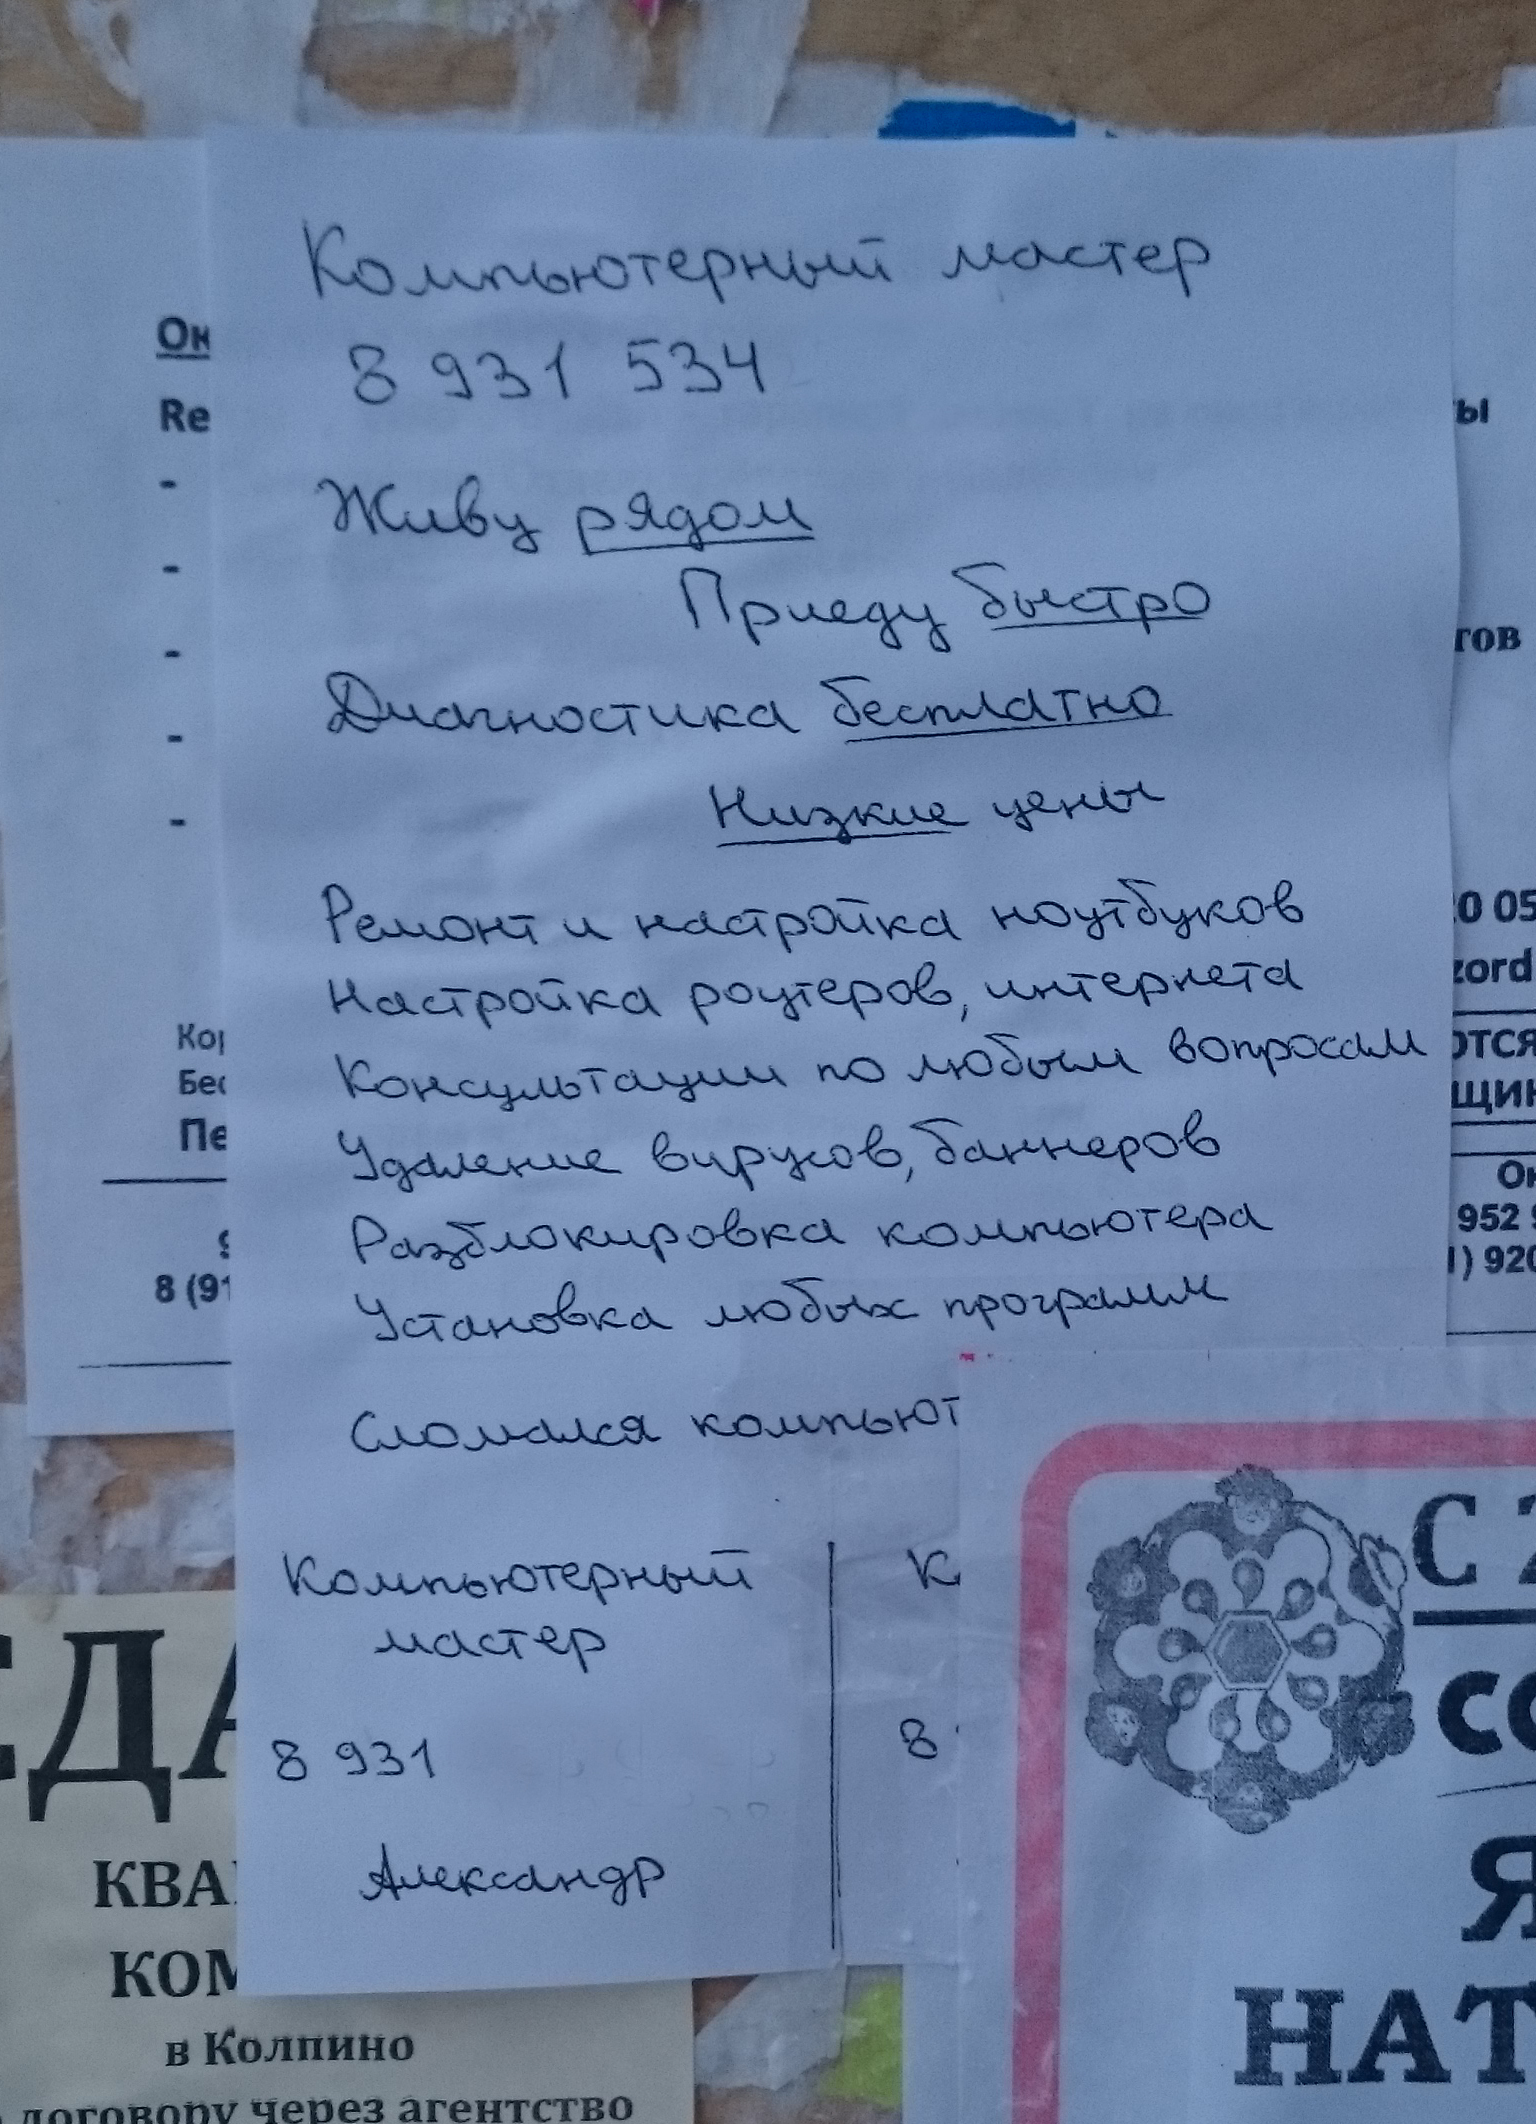 Компьютерный мастер
8 931 534
Живу рядом
Приеду быстро
Диагностика бесплатно
Низкие цены
Ремонт и настройка ноутбуков
Настройка роутеров, интернета
Консультации по любым вопросам
Удаление вирусов, баннеров
Разблокировка компьютера
Установка любых программ
Сломался компьют
Компьютерный
мастер
8 931
Александр
К
8
Он
Re
-
-
-
-
-
Бес
Пе
8 (91
ты
тов
0 05
zord
ются
щин
Он
952 9
1) 920
СДА
КВА
КОМ
в Колпино
договору через агентство
С 2
СО
Я
НАТ